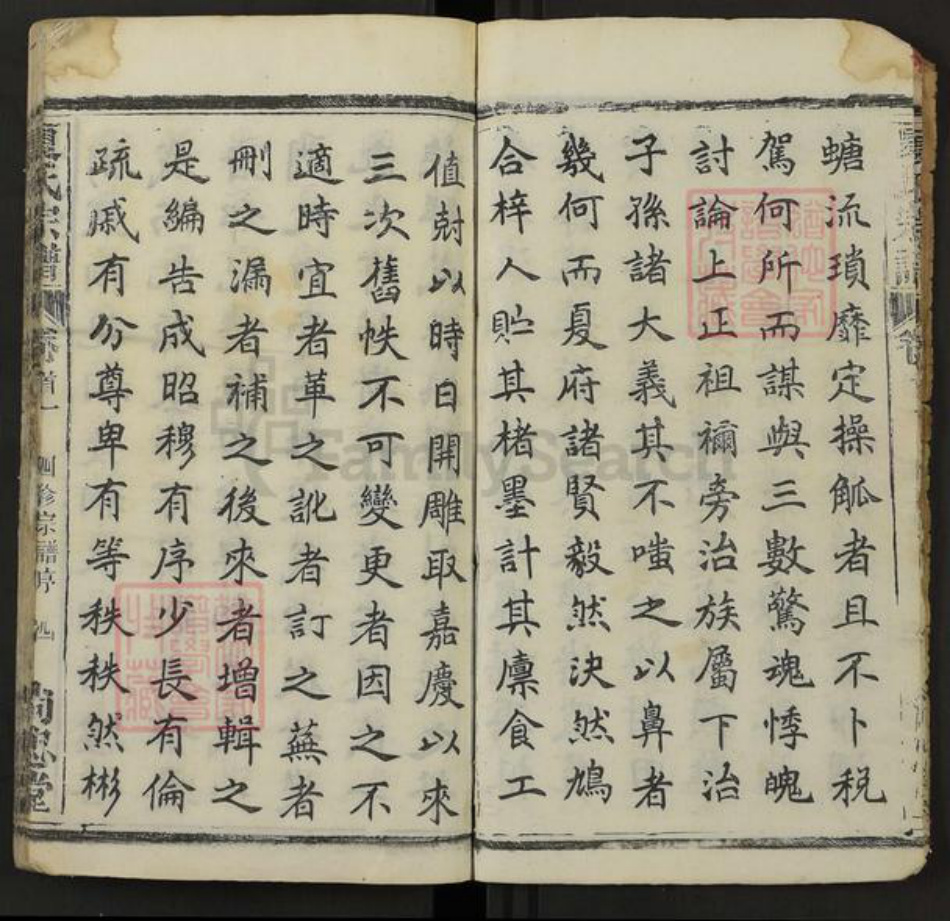 螗流瑣靡定操觚者且不卜稅
駕何所而謀與三數驚魂悸魄
討論上正祖禰旁治族屬下治
子孫諸大義其不嗤之以鼻者
幾何而夏府諸賢毅然決然鳩
合梓人貯其楮墨計其廩食工
值尅以時日開雕取嘉慶以來
三次舊帙不可變更者因之不
適時宜者革之訛者訂之蕪者
刪之漏者補之後來者增輯之
是編告成昭穆有序少長有倫
疏戚有分尊卑有等秩秩然彬
夏氏宗譜 卷首一 四修宗譜序 四
FamilySearch